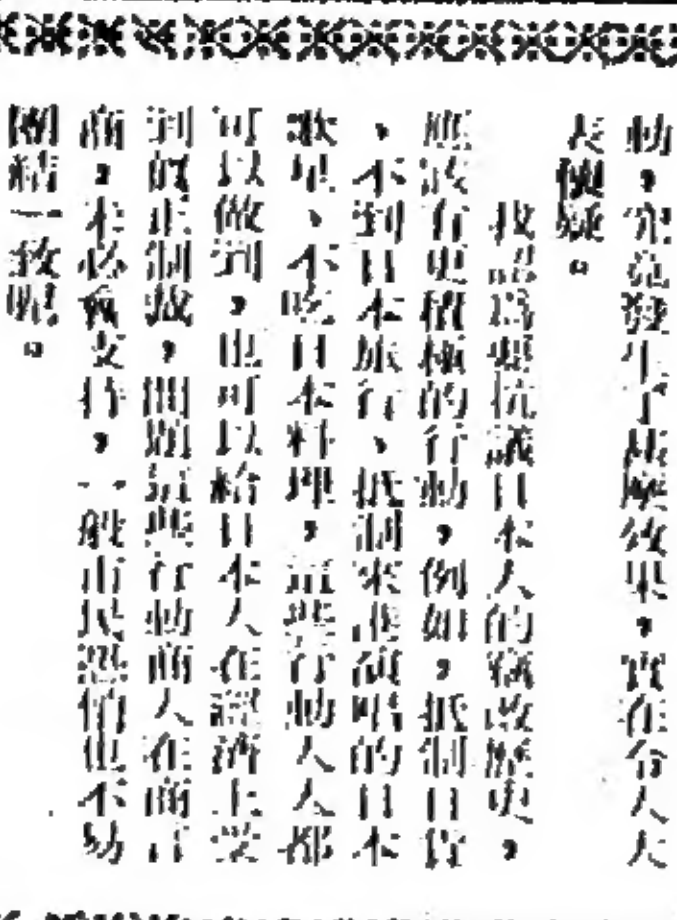 動，究竟發生了甚麼效果，實在令人大
大懷疑。
我認爲要抗議日本人的竄改歷史，
應該有更積極的行動，例如，抵制日貨
，不到日本旅行、抵制來港演唱的日本
歌星、不吃日本料理，這些行動人人都
可以做到，也可以給日本人在經濟上受
到眞正制裁，問題這些行動商人在商言
商，未必肯支持，一般市民恐怕也不易
團結一致呢。